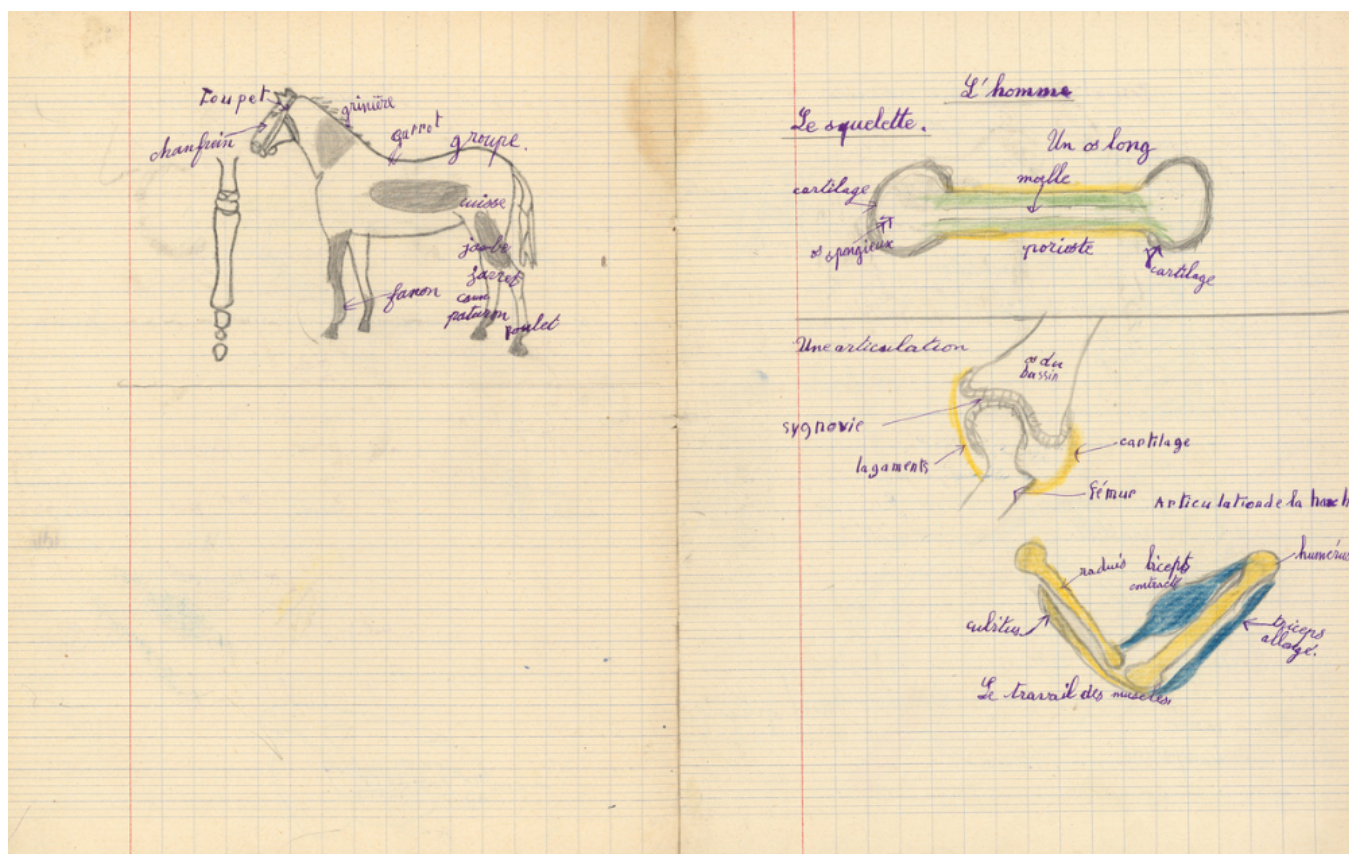 Toupet
chanfrein
grinière
garrot
groupe.
cuisse
jambe
jarret
canon
paturon
poulet
fanon
L'homme
Le squelette.
Un os long
cartilage
moelle
os spongieux
porioste
cartilage
Une articulation
os du
bassin
sygnovie
lagaments
cartilage
fémur
Articulation de la hanch
raduis
biceps
contracté
humérus
cubitus
triceps
allongé.
Le travail des muscles